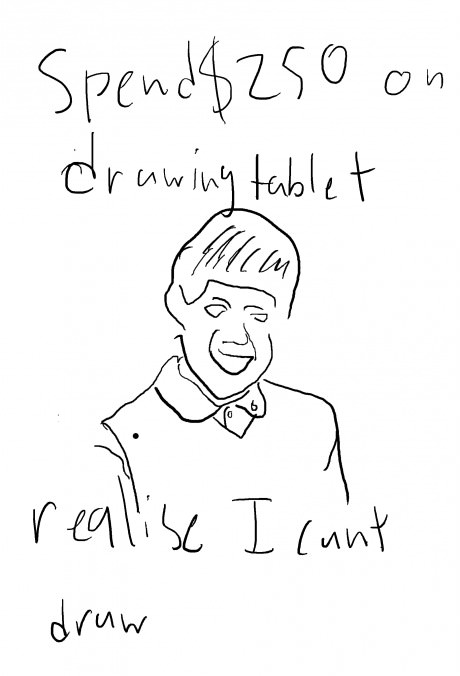 Spend $250 on
drawing tablet
realise I cant
draw